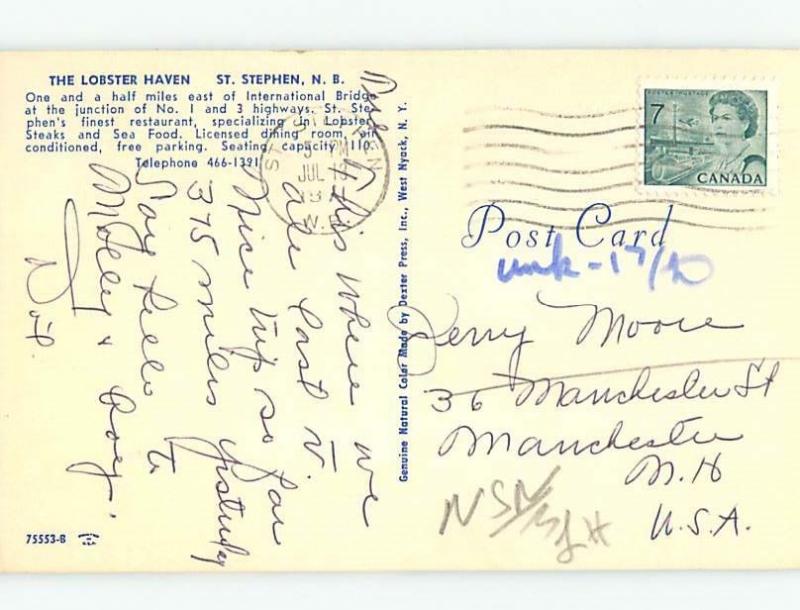 THE LOBSTER HAVEN ST. STEPHEN, N. B.
One and a half miles east of International Bridge
at the junction of No. 1 and 3 highways. St. Ste-
phen's finest restaurant, specializing in Lobster,
Steaks and Sea Food. Licensed dining room, air
conditioned, free parking. Seating capacity 110.
Telephone 466-1391
This where we
ate last N.
Nice trip so far
375 miles yesterday
Say hello to
Molly &
Dot
75553-B
Genuine Natural Color Made by Dexter Press, Inc., West Nyack, N. Y.
JUL
PM
7
POSTES POSTAGE
CANADA
Post Card
Jerry Moore
36 Manchester St
Manchester
N.H
U.S.A.